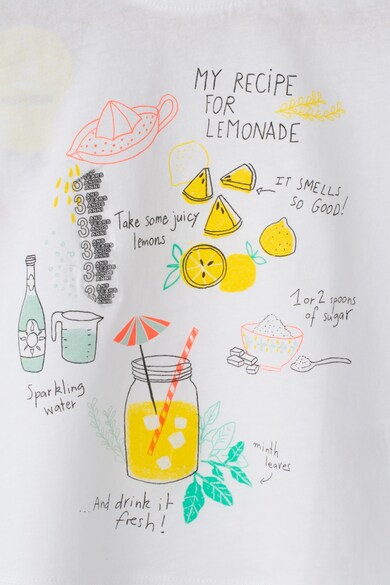 MY RECIPE
FOR
LEMONADE
IT SMELLS
SO GOOD!
Take some juicy
lemons
1 or 2 spoons
of sugar
Sparkling
water
minth
leaves
...And drink it
fresh!